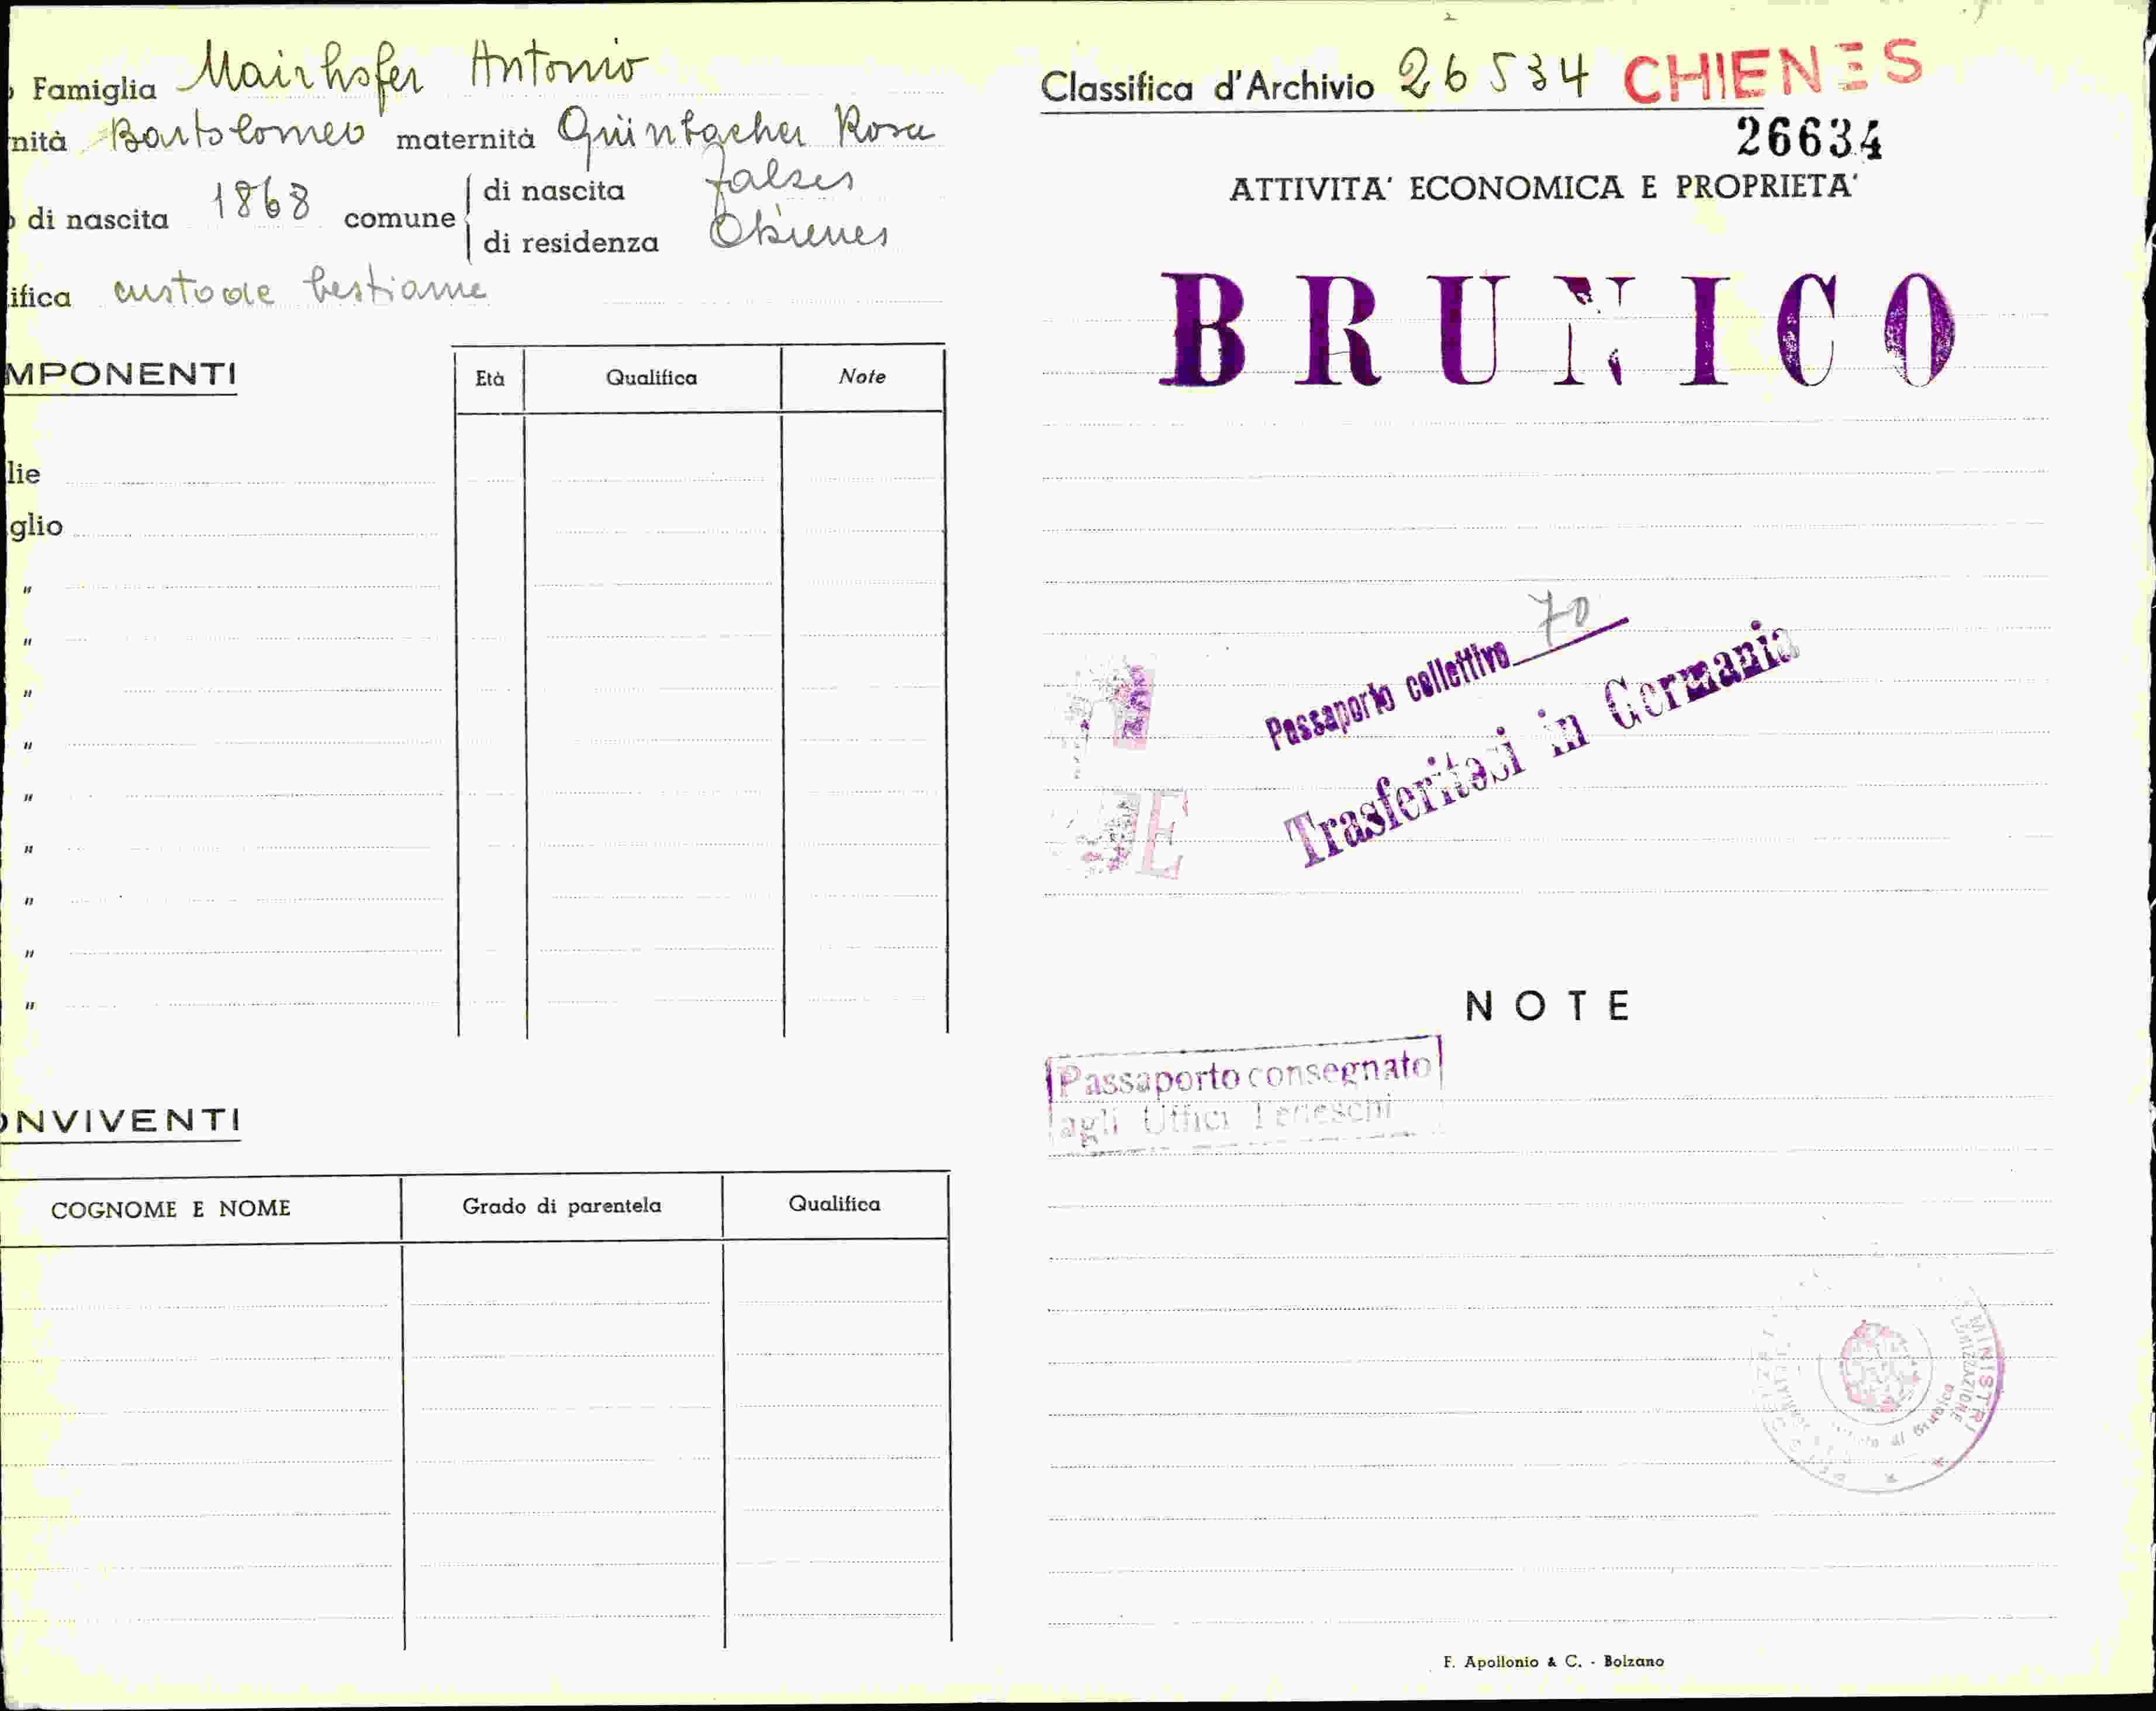 Famiglia Mairhofer Antonio
nità Bartolomeo maternità Grüntbacher Rosa
di nascita 1868 comune di nascita Falzes
di residenza Chienes
ifica custode bestiame
MPONENTI
Età Qualifica Note
lie
glio
"
"
"
"
"
"
"
"
"
ONVIVENTI
COGNOME E NOME Grado di parentela Qualifica
Classifica d'Archivio 26534 CHIENES
26634
ATTIVITA' ECONOMICA E PROPRIETA'
BRUNICO
Passaporto collettivo 70
Trasferitosi in Germania
NOTE
Passaporto consegnato
agli Uffici Tedeschi
MINISTRI
F. Apollonio & C. - Bolzano